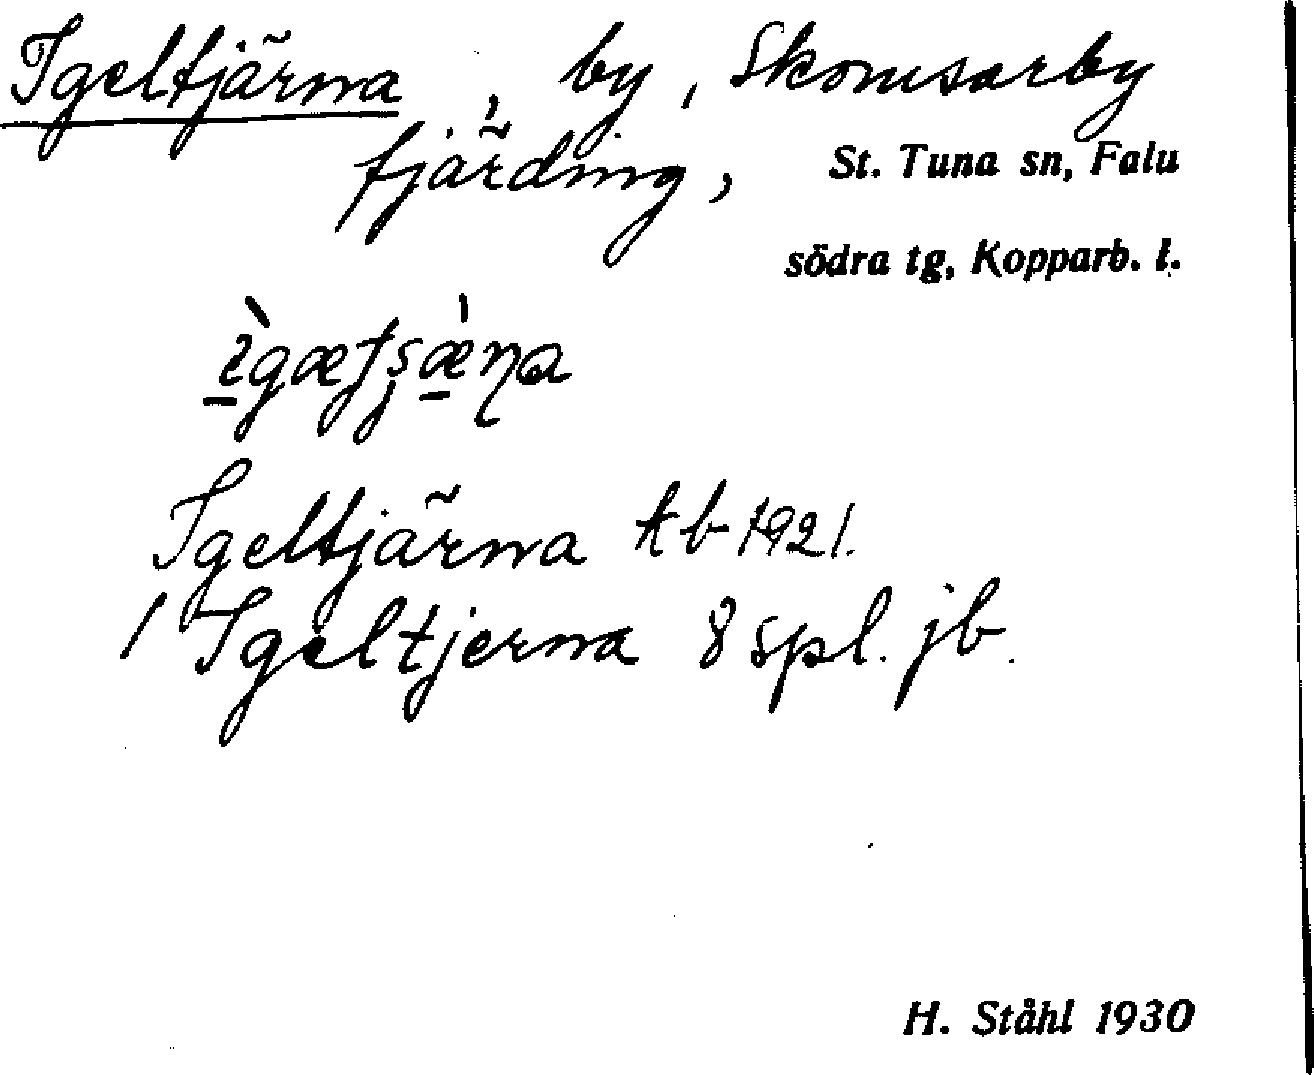 Igeltjärna, by, Skomsarby
fjärding, St. Tuna sn, Falu
södra tg, Kopparb. l.
Igeltjärna kb 1921.
1 Igeltjerna 8 spl. jb.
H. Ståhl 1930